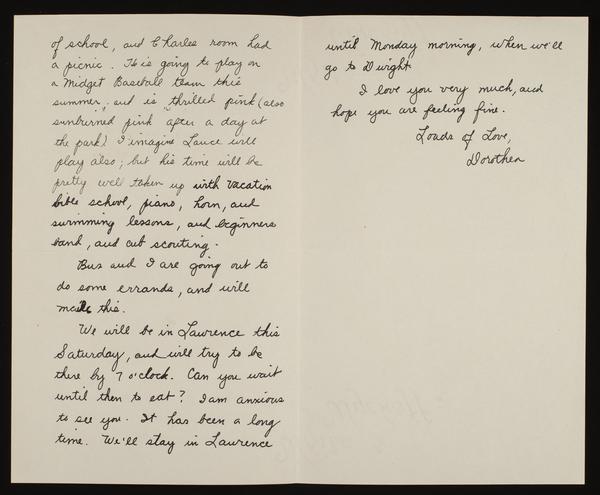 of school, and Charles room had
a picnic. He is going to play on
a Midget Baseball team this
summer, and is "thrilled pink" (also
sunburned pink after a day at
the park). I imagine Lance will
play also; but his time will be
pretty well taken up with vacation
bible school, piano, horn, and
swimming lessons, and beginners
band, and cub scouting.
Bus and I are going out to
do some errands, and will
mail this.
We will be in Lawrence this
Saturday, and will try to be
there by 7 o'clock. Can you wait
until then to eat? I am anxious
to see you. It has been a long
time. We'll stay in Lawrence
until Monday morning, when we'll
go to Dwight.
I love you very much, and
hope you are feeling fine.
Loads of Love,
Dorothea